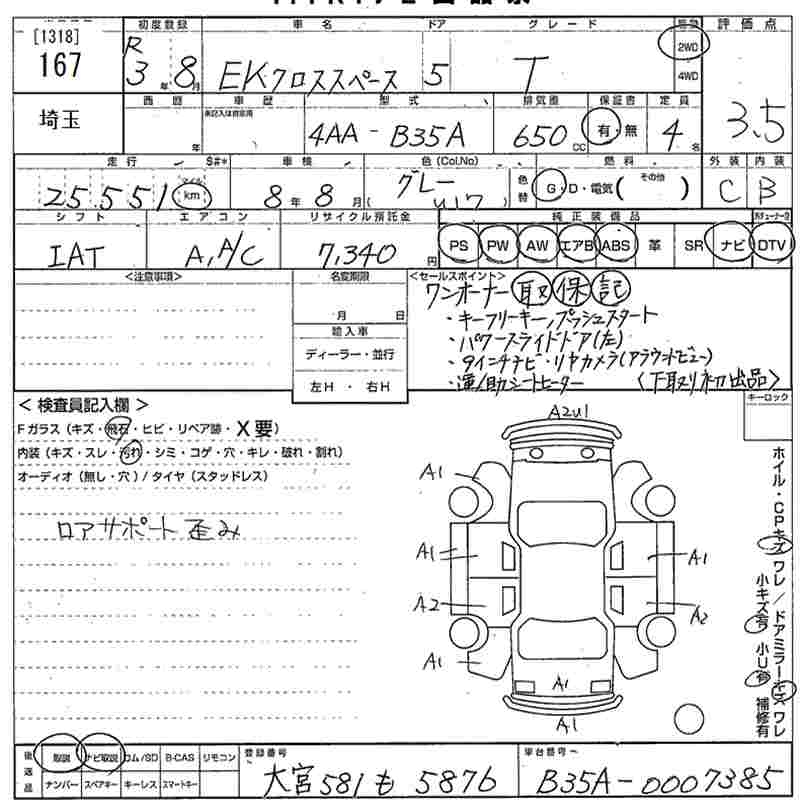 [1318]
167
埼玉
初度登録 車名 ドア グレード 駆動 評価点
R 3年 8月 EKクロススペース 5 T 2WD 4WD 3.5
西暦 車歴 型式 排気量 保証書 定員
年 未記入は自家用 4AA-B35A 650cc 有・無 4名
走行 S#* 車検 色(Col.No) 燃料 外装 内装
25,551 マイル km 8年 8月 グレー 色替 G・D・電気( その他 ) C B
シフト エアコン リサイクル預託金 純正装備品
IAT A,A/C 7,340円 PS PW AW エアB ABS 革 SR ナビ DTV
<注意事項> 名変期限 <セールスポイント>
月 日 ワンオーナー 取 保 記
輸入車 ・キーフリーキー,プッシュスタート
ディーラー・並行 ・パワースライドドア(左)
左H ・ 右H ・9インチナビ・リヤカメラ(アラウンドビュー)
・運/助シートヒーター (下取り初出品)
キーロック
< 検査員記入欄 >
Fガラス(キズ・飛石・ヒビ・リペア跡・X要)
内装(キズ・スレ・汚れ・シミ・コゲ・穴・キレ・破れ・割れ)
オーディオ(無し・穴)/タイヤ(スタッドレス)
ロアサポート歪み
A2U1
A1
A1 A1
A2 A2
A1
A1
A1
ホイル・CPキズ ワレ/ドアミラーキズ ワレ
小キズ有 小U有 補修有
後送品 取説 ナビ取説 ロム/SD B-CAS リモコン
ナンバー スペアキー キーレス スマートキー
登録番号 大宮 581 も 5876
車台番号 B35A-0007385